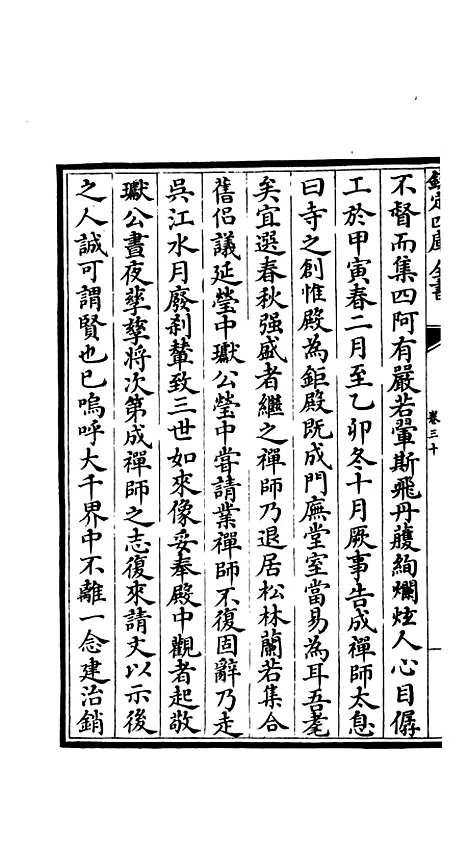 欽定四庫全書
卷三十
不督而集四阿有嚴若翬斯飛丹雘絢爛炫人心目僝
工於甲寅春二月至乙卯冬十月厥事告成禪師太息
曰寺之創惟殿為鉅殿既成門廡堂室當易為耳吾耄
矣宜選春秋强盛者繼之禪師乃退居松林蘭若集合
舊侣議延瑩中瓛公瑩中嘗請業禪師不復固辭乃走
吳江水月廢刹輦致三世如來像妥奉殿中觀者起敬
瓛公晝夜孳孳將次第成禪師之志復來請文以示後
之人誠可謂賢也已嗚呼大千界中不離一念建治銷